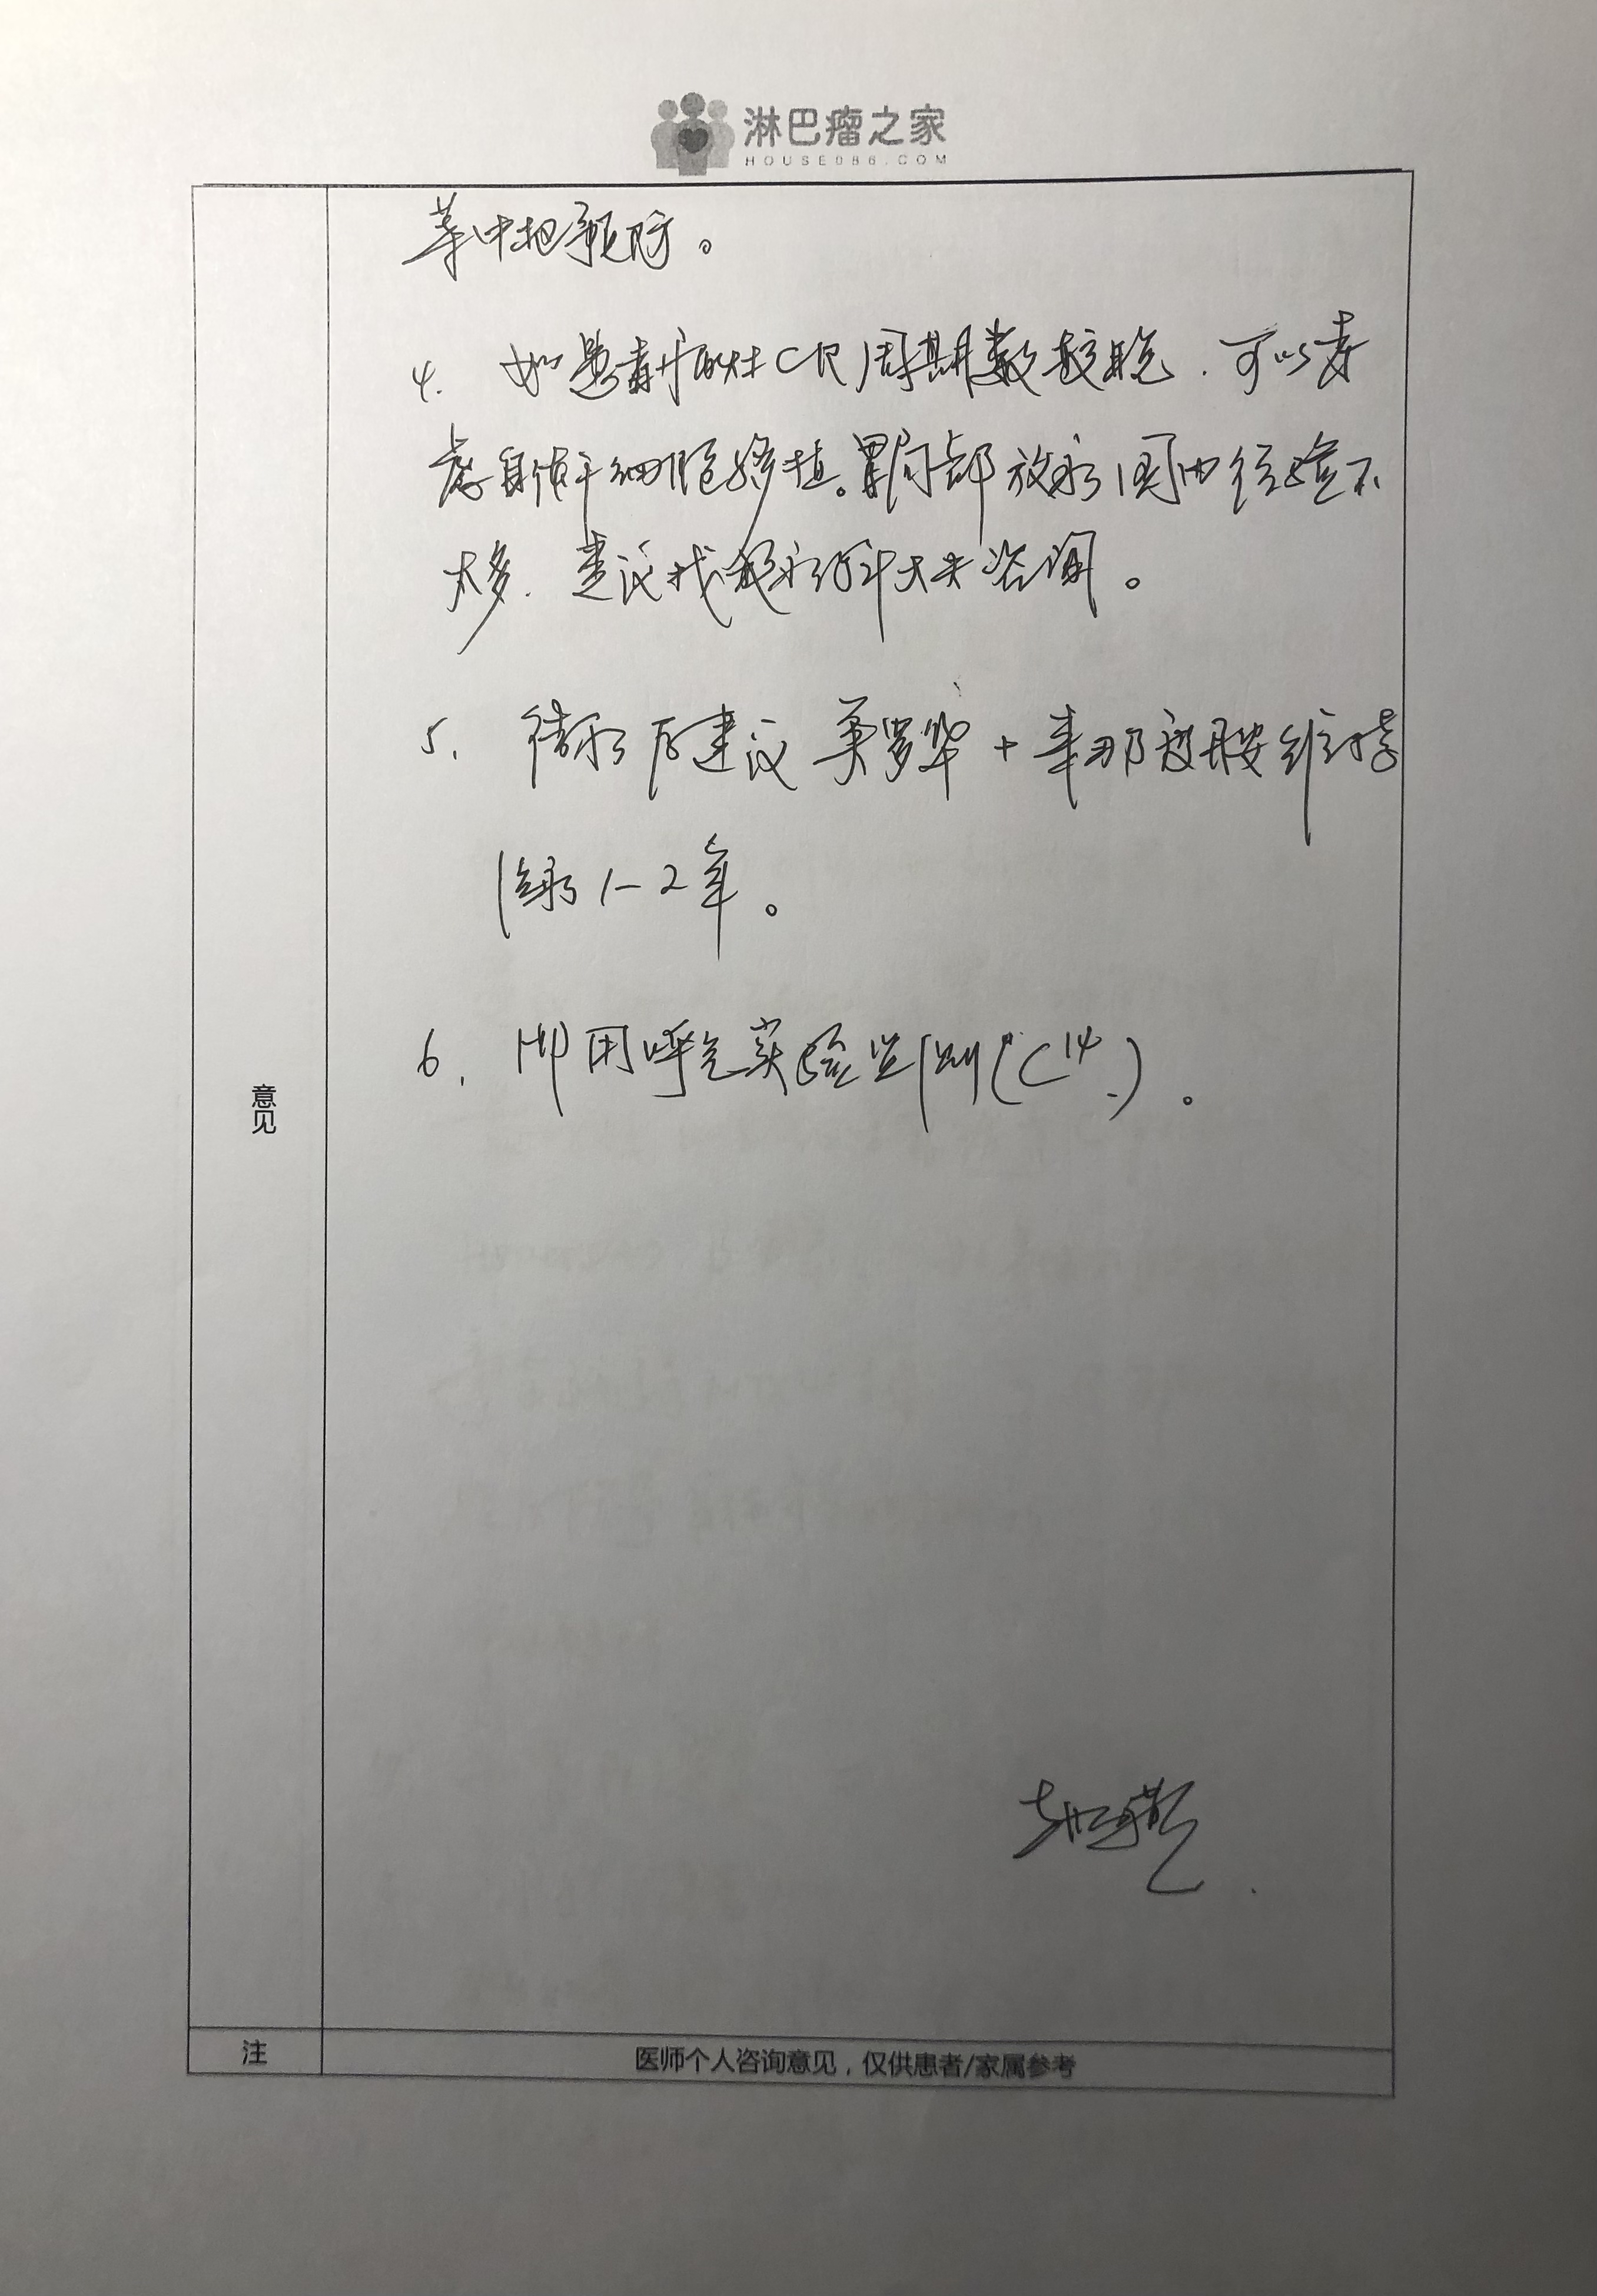 淋巴瘤之家
HOUSE086.COM
中枢预防。
4. 如患者病灶CR周期数较晚.可以考
虑自体干细胞移植。睾局部放疗国内经验不
太多.建议找放疗科大夫咨询。
5. 结疗后建议 美罗华 + 来那度胺维持
治疗1-2年。
6. HP用呼气实验监测(C14)。
意见
注
医师个人咨询意见，仅供患者/家属参考